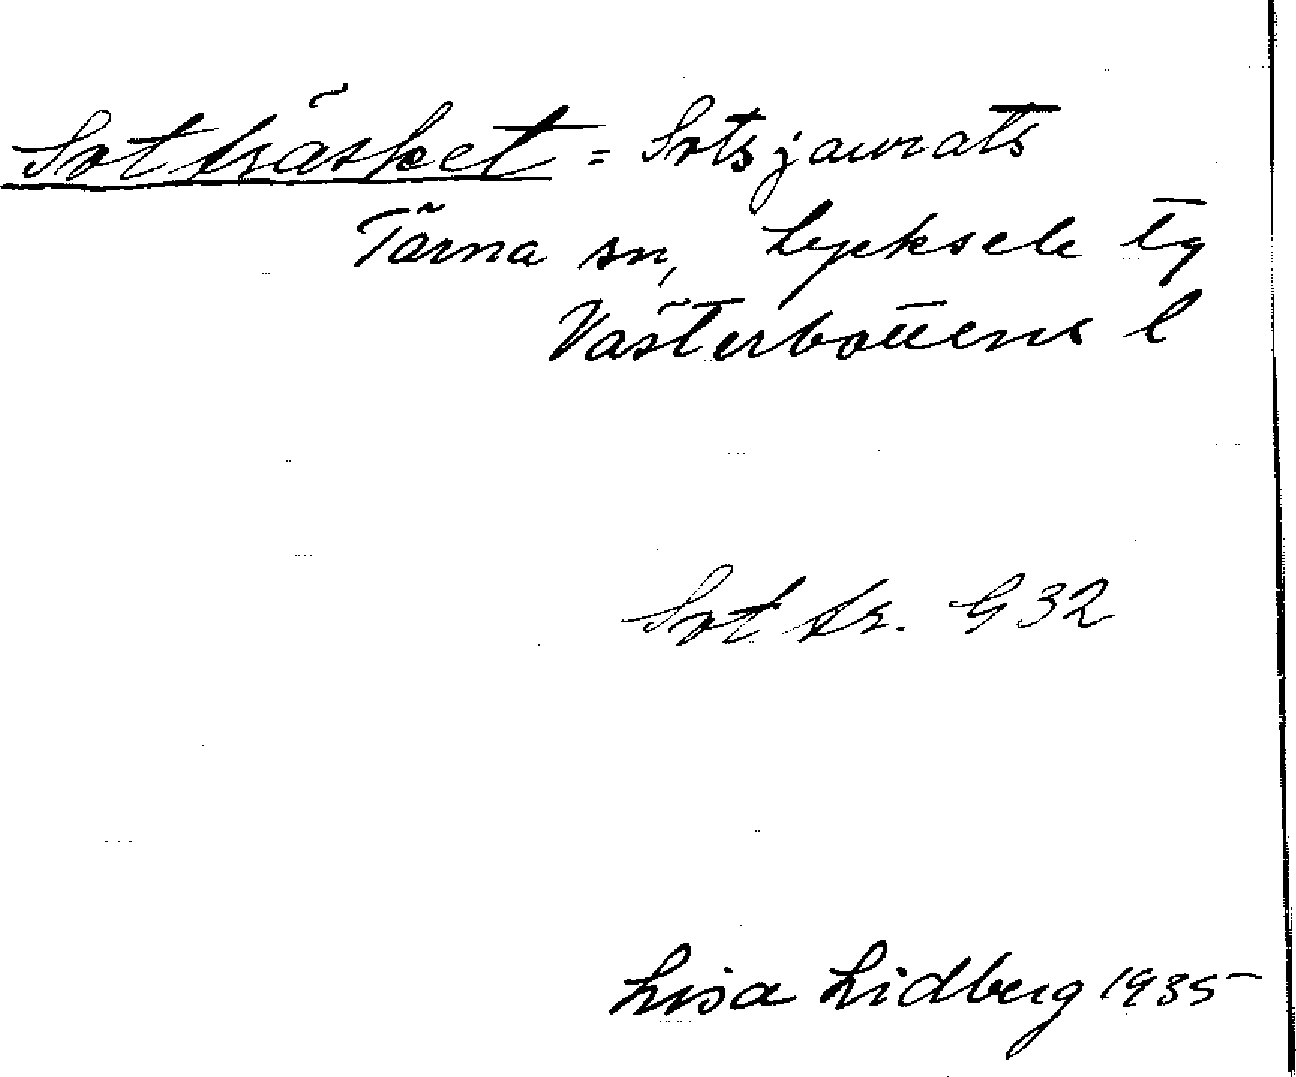 Sotträsket = Sotsjaurats
Tärna sn, Lycksele lg
Västerbottens l
Sot tr. G 32
Lisa Lidberg 1935